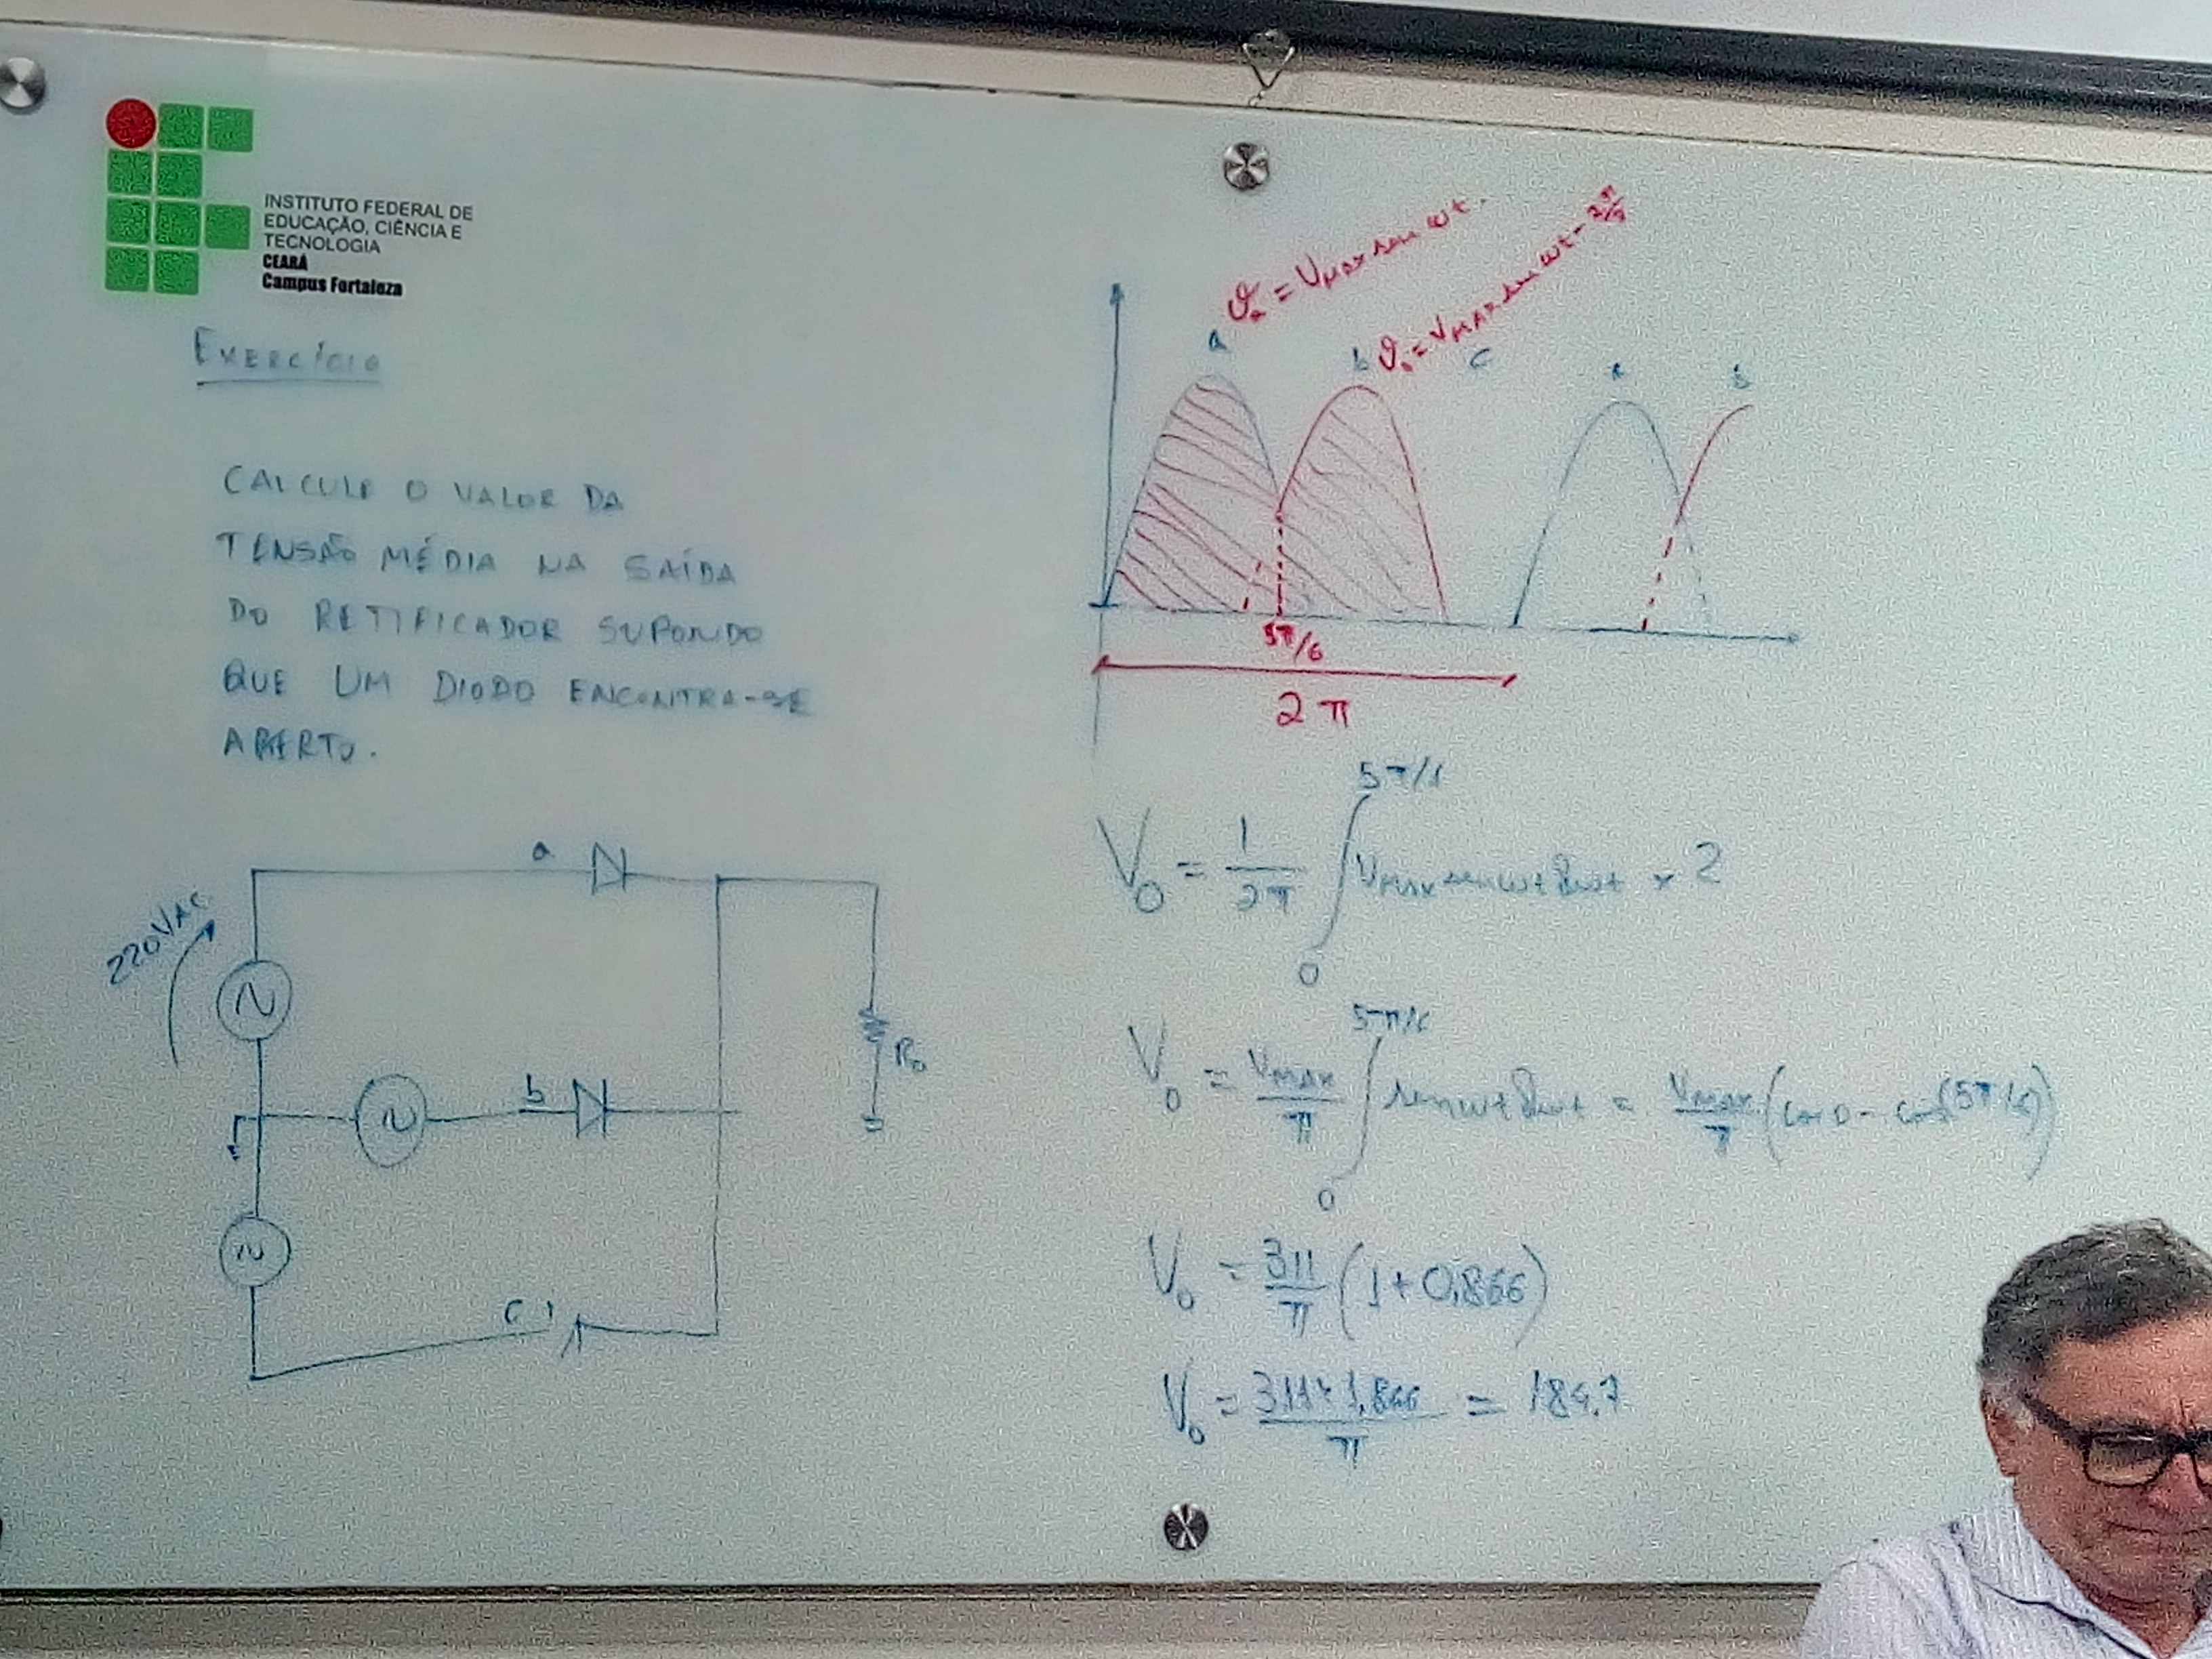 INSTITUTO FEDERAL DE
EDUCAÇÃO, CIÊNCIA E
TECNOLOGIA
CEARÁ
Campus Fortaleza
EXERCÍCIO
CALCULE O VALOR DA
TENSÃO MÉDIA NA SAÍDA
DO RETIFICADOR SUPONDO
QUE UM DIODO ENCONTRA-SE
ABERTO.
220VAC
a
b
c
R₀
a
ϑₐ = VMAX sen ωt
b
ϑ₀ = VMAX sen ωt - 2π/3
c
a
b
5π/6
2π
V₀ = 1/2π ∫₀^5π/6 VMAX sen ωt dωt × 2
V₀ = VMAX/π ∫₀^5π/6 sen ωt dωt = VMAX/π (cos 0 - cos(5π/6))
V₀ = 311/π (1+0,866)
V₀ = 311×1,866/π = 184,7